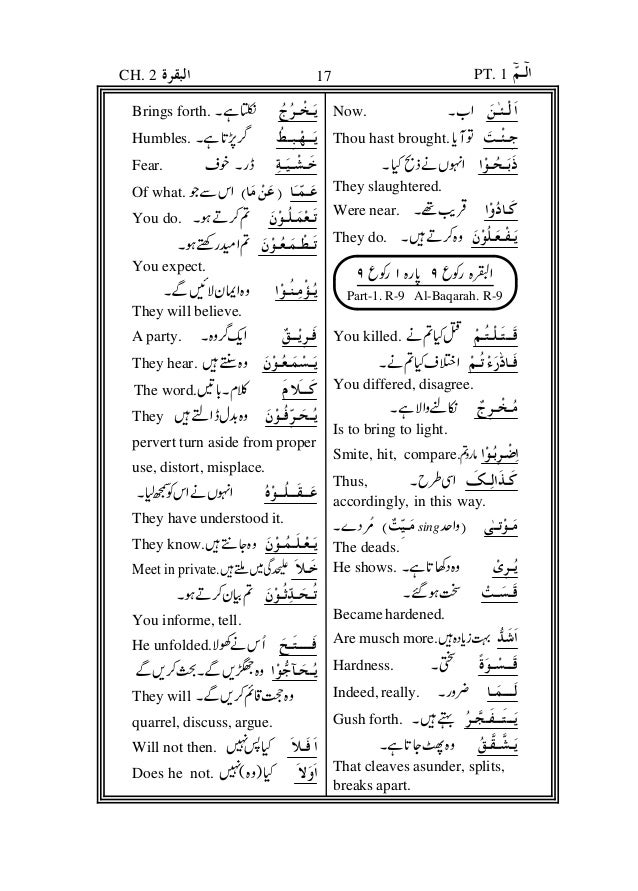 الٓمّٓ PT. 1 17 البقرة CH. 2
اَلْـٰٔنَ اب۔ Now.
جِئْتَ تو آیا Thou hast brought.
ذَبَحُوْا انہوں نے ذبح کیا۔
They slaughtered.
کَادُوْا قریب تھے۔ Were near.
یَفْعَلُوْنَ وہ کرتے ہیں۔ They do.
البقرہ رکوع ۹ پارہ ۱ رکوع ۹
Part-1. R-9 Al-Baqarah. R-9
قَتَلْتُمْ قتل کیا تم نے You killed.
فَادّٰرَءْتُمْ اختلاف کیا تم نے۔
You differed, disagree.
مُخْرِجٌ نکالنے والا ہے۔
Is to bring to light.
اِضْرِبُوْا مارو تم Smite, hit, compare.
کَذَالِکَ اسی طرح۔ Thus,
accordingly, in this way.
مَوْتٰی (واحد sing مَیِّتٌ) مُردے۔
The deads.
یُرِیْ وہ دکھاتا ہے۔ He shows.
قَسَتْ سخت ہو گئے۔
Became hardened.
اَشَدُّ بہت زیادہ ہیں Are musch more.
قَسْوَةً سختی۔ Hardness.
لَمَا ضرور۔ Indeed, really.
یَتَفَجَّرُ بہتے ہیں۔ Gush forth.
یَشَّقَّقُ وہ پھٹ جاتا ہے۔
That cleaves asunder, splits,
breaks apart.
یَخْرُجُ نکلتا ہے۔ Brings forth.
یَهْبِطُ گر پڑتا ہے۔ Humbles.
خَشْیَةِ ڈر۔ خوف Fear.
عَمَّا (عَنْ مَا) اس سے جو Of what.
تَعْمَلُوْنَ تم کرتے ہو۔ You do.
تَطْمَعُوْنَ تم امید رکھتے ہو۔
You expect.
یُؤْمِنُوْا وہ ایمان لائیں گے۔
They will believe.
فَرِیْقٌ ایک گروہ۔ A party.
یَسْمَعُوْنَ وہ سنتے ہیں They hear.
کَلَامَ کلام۔ باتیں The word.
یُحَرِّفُوْنَ وہ بدل ڈالتے ہیں They
pervert turn aside from proper
use, distort, misplace.
عَقَلُوْهُ انہوں نے اس کو سمجھ لیا۔
They have understood it.
یَعْلَمُوْنَ وہ جانتے ہیں They know.
خَلَا علیحدگی میں ملتے ہیں Meet in private.
تُحَدِّثُوْنَ تم بیان کرتے ہو۔
You informe, tell.
فَتَحَ اُس نے کھولا He unfolded.
یُحَآجُّوْا وہ جھگڑیں گے۔ بحث کریں گے
وہ حجت قائم کریں گے۔ They will
quarrel, discuss, argue.
اَفَلَا کیا پس نہیں Will not then.
اَوَلَا کیا (وہ) نہیں Does he not.